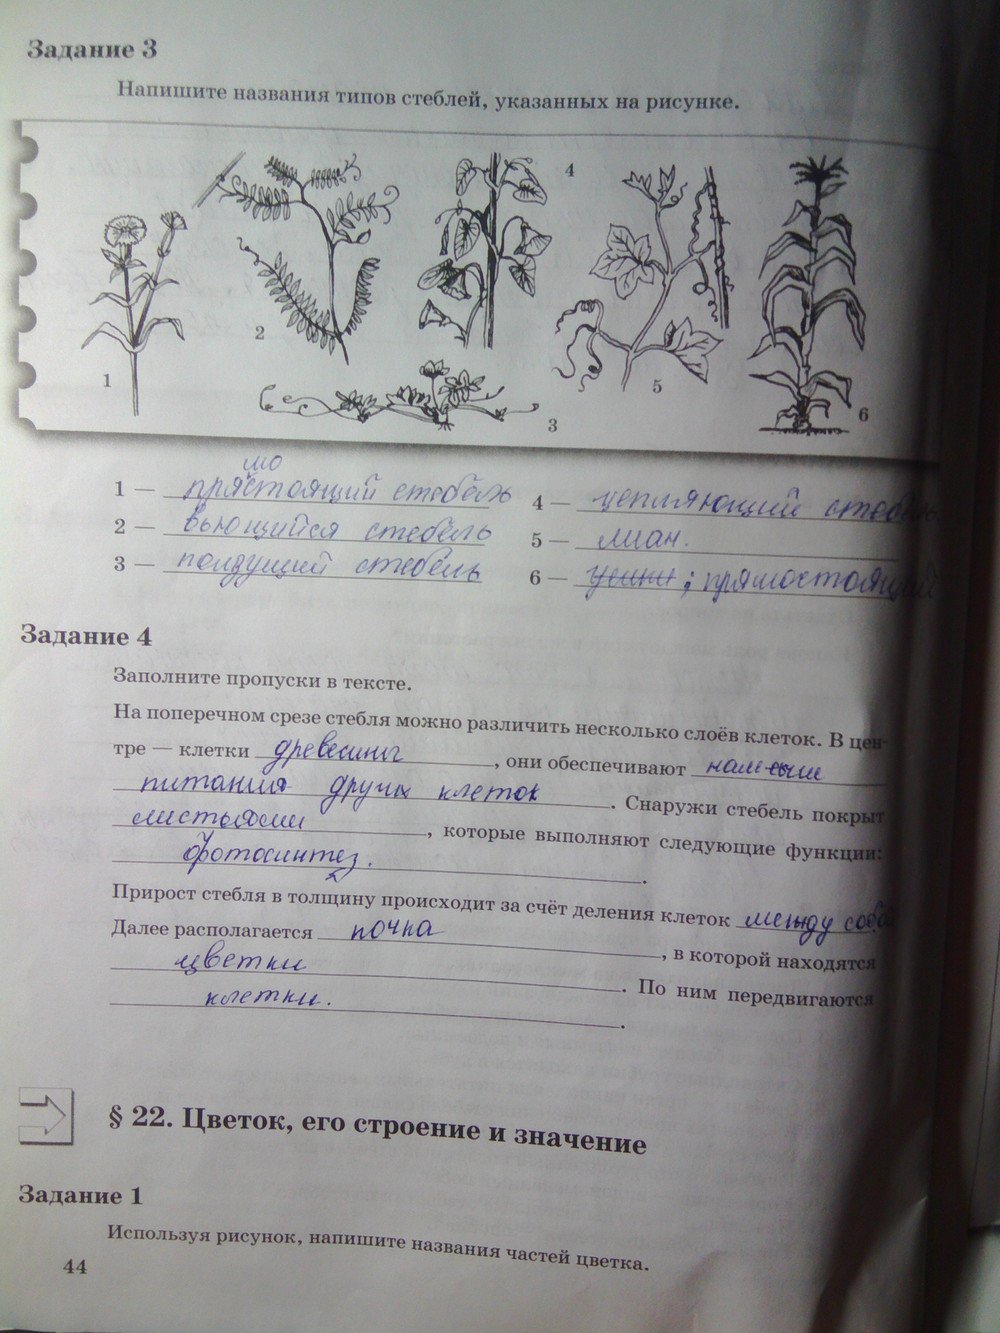 Задание 3
Напишите названия типов стеблей, указанных на рисунке.
4
2
1
5
3
6
мо
1 — прястоящий стебель
2 — вьющийся стебель
3 — ползущий стебель
4 — цепляющий стебель
5 — лиан.
6 — ; прямостоящий
Задание 4
Заполните пропуски в тексте.
На поперечном срезе стебля можно различить несколько слоёв клеток. В цен-
тре — клетки древесины, они обеспечивают
питания других клеток. Снаружи стебель покрыт
листьями, которые выполняют следующие функции:
фотосинтез.
Прирост стебля в толщину происходит за счёт деления клеток между собой
Далее располагается почка, в которой находятся
цветки. По ним передвигаются
клетки.
§ 22. Цветок, его строение и значение
Задание 1
Используя рисунок, напишите названия частей цветка.
44